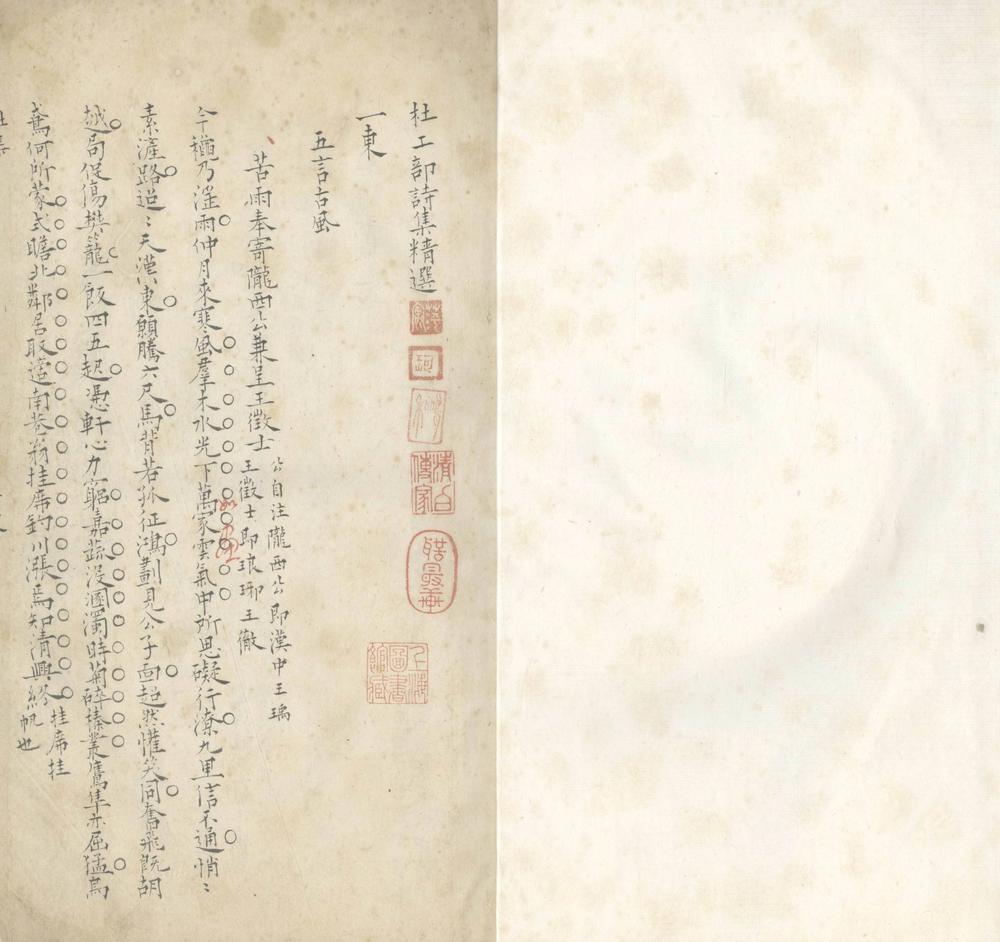 杜工部詩集精選
一東
五言古風
苦雨奉寄隴西公兼呈王徵士
公自注隴西公即漢中王瑀
王徵士即琅琊王徹
今穐乃淫雨仲月來寒風羣木水光下萬家雲氣中所思礙行潦九里信不通悄〻
素滻路迢〻天漢東願騰六尺馬背若孤征鴻劃見公子面超然懽笑同奮飛旣胡
越局促傷樊籠一飯四五起憑軒心力窮嘉蔬沒溷濁時菊碎榛叢鷹隼亦屈猛烏
鳶何所蒙式瞻北鄰居取適南巷翁挂席釣川漲焉知清興終
挂席挂
帆也
清白傳家
上海圖書館藏